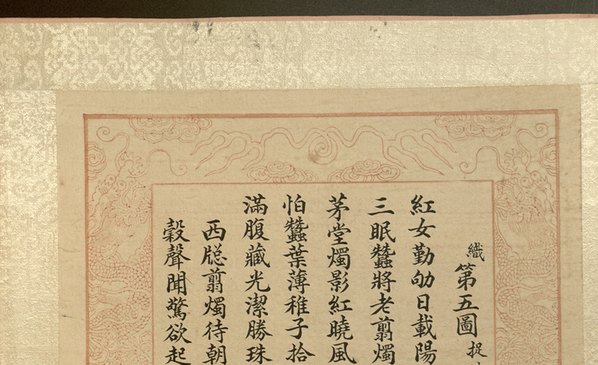 織第五圖捉
紅女勤劬日載陽
三眠蠶將老翦燭
茅堂燭影紅曉風
怕蠶葉薄稚子拾
滿腹藏光潔勝珠
西牕翦燭待朝
糓聲聞驚欲起